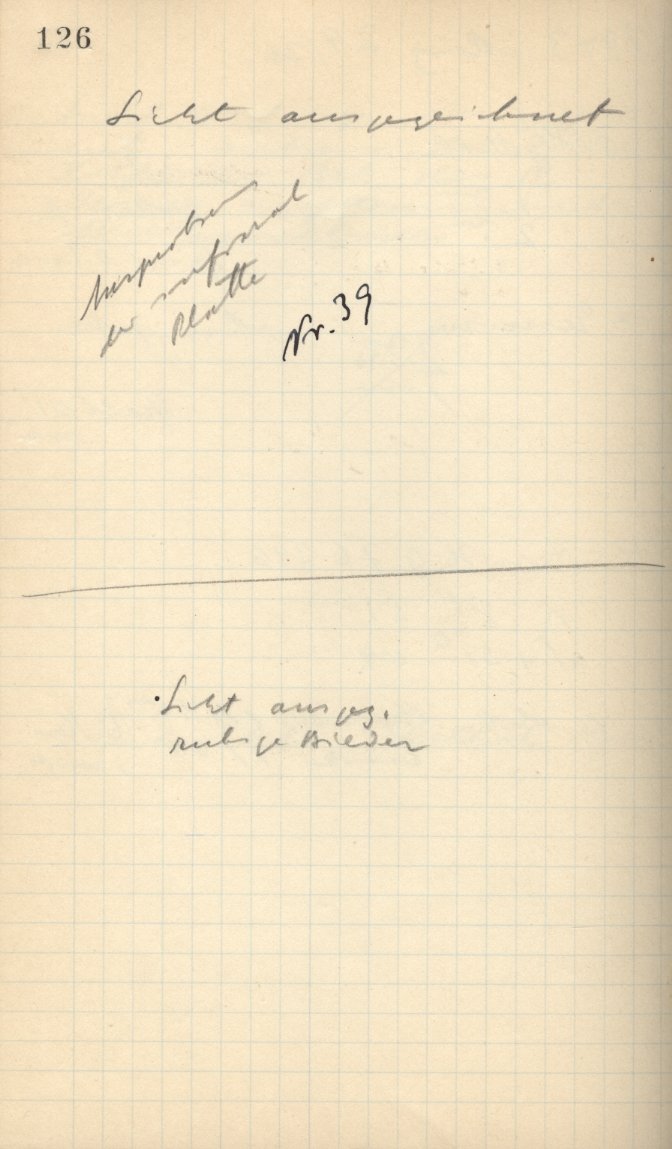 126
Licht ausgezeichnet
Ausprobieren
der
Platte
Nr. 39
Licht ausgez.
ruhige Bilder